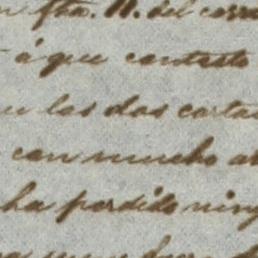 fha. 11. del corr
á que contesto
las dos carta
con mucho a
ha perdido ning